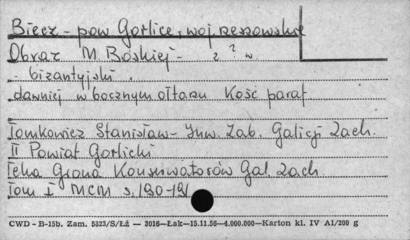 Biecz - pow Gorlice, woj rzeszowskie
Obraz M Boskiej - ? ? w
- bizantyjski .
dawniej w bocznym ołtarzu Kość paraf
Tomkowicz Stanisław - Inw. Zab. Galicji Zach.
II Powiat Gorlicki
Teka Grona Konserwatorów Gal Zach
Tom I MCM s. 190-191
CWD - B-15b. Zam. 5123/S/Łż — 3016—Łak—15.11.56—4.000.000—Karton kl. IV A1/200 g